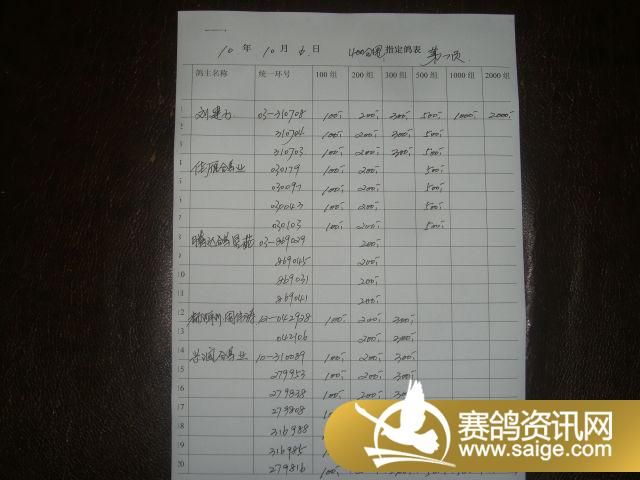 10 年 10 月 6 日 400公里 指定鸽表 第一页
鸽主名称 统一环号 100 组 200 组 300 组 500 组 1000 组 2000 组
1 03-310708 100 200 300 500 1000 2000
2 310704 100 200 300 500
3 310703 100 200 300 500
4 鸽业 030179 100 200 500
5 030097 100 200 500
6 030043 100 200 500
7 030103 100 200 500
8 03-869029 200
9 869045 200
10 869031 200
11 869041 200
12 042938 100 200 300
13 042106 200 300
14 鸽业 10-310089 100 200 300
15 279953 100 200 300
16 279838 100 200 300
17 279808
18 316988
19 316985
20 279816 100
赛鸽资讯网
www.saige.com